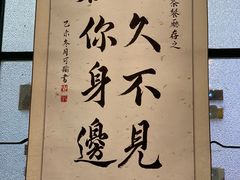 茶餐廳存之
久不見
你身邊
乙未冬月可書